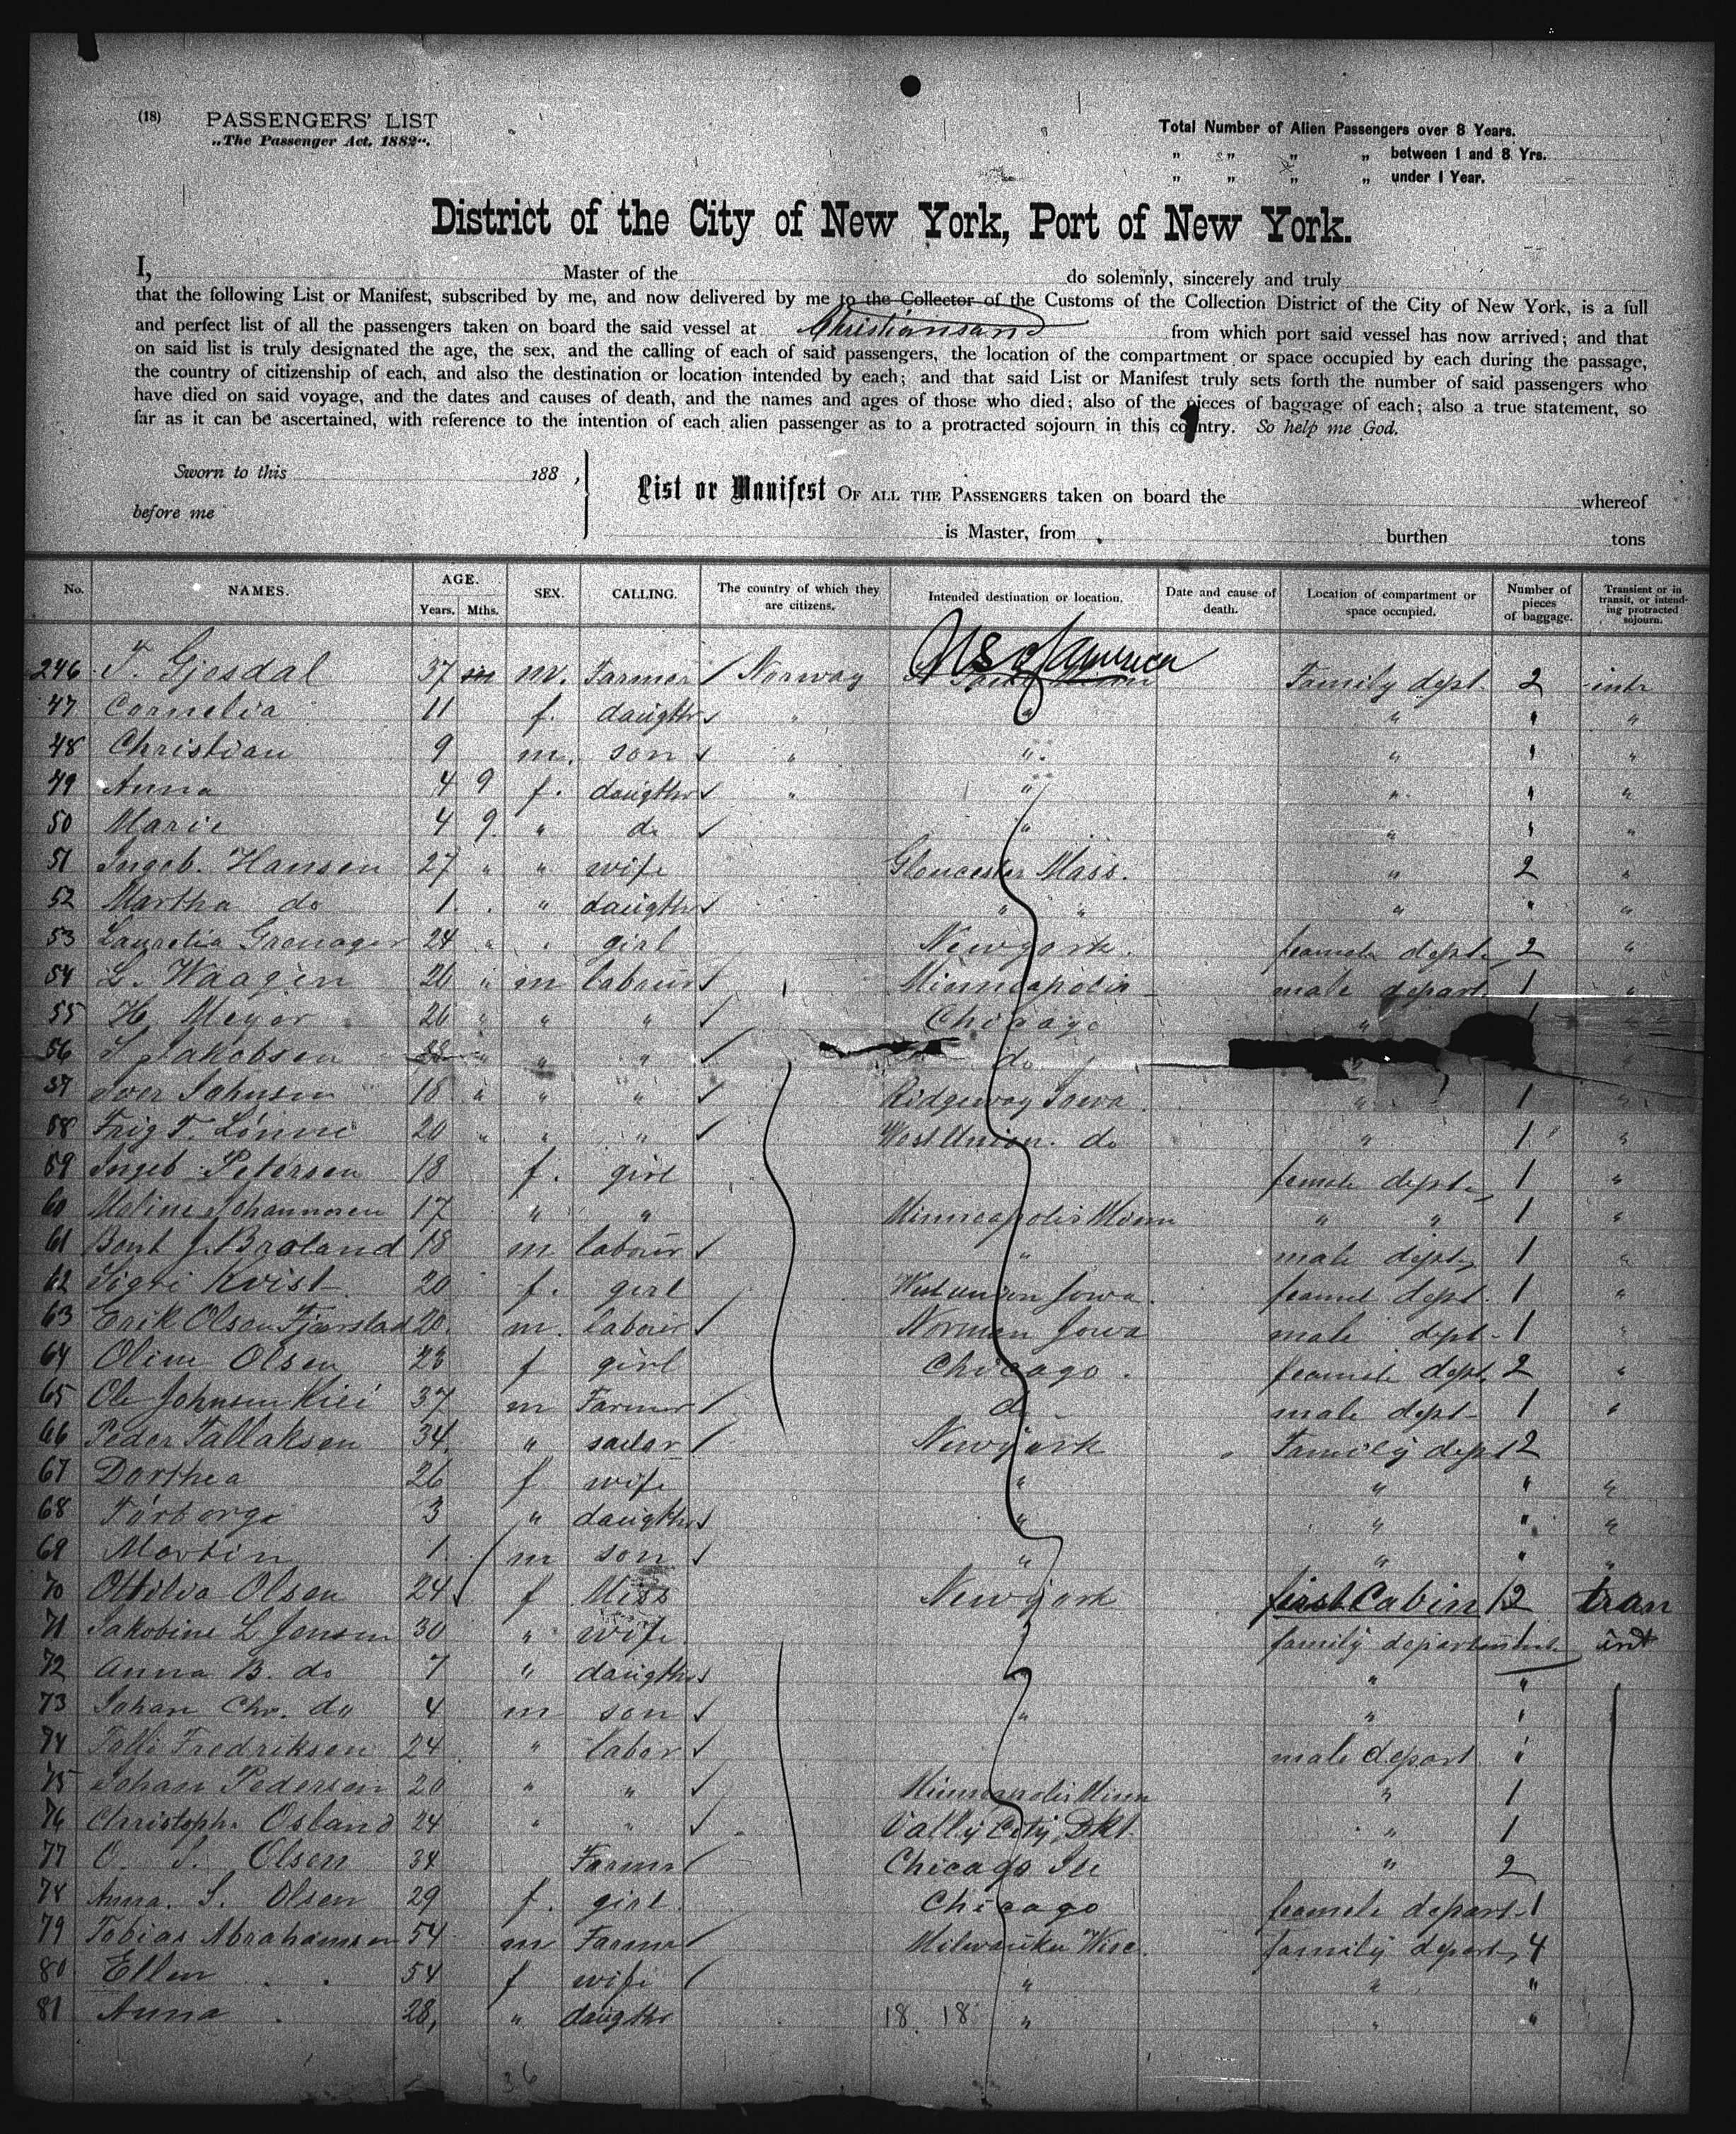 (18) PASSENGERS' LIST
„The Passenger Act, 1882“.
Total Number of Alien Passengers over 8 Years.
„ „ „ „ between 1 and 8 Yrs.
„ „ „ „ under 1 Year.
District of the City of New York, Port of New York.
I, Master of the do solemnly, sincerely and truly
that the following List or Manifest, subscribed by me, and now delivered by me to the Collector of the Customs of the Collection District of the City of New York, is a full
and perfect list of all the passengers taken on board the said vessel at Christiansand from which port said vessel has now arrived; and that
on said list is truly designated the age, the sex, and the calling of each of said passengers, the location of the compartment or space occupied by each during the passage,
the country of citizenship of each, and also the destination or location intended by each; and that said List or Manifest truly sets forth the number of said passengers who
have died on said voyage, and the dates and causes of death, and the names and ages of those who died; also of the pieces of baggage of each; also a true statement, so
far as it can be ascertained, with reference to the intention of each alien passenger as to a protracted sojourn in this country. So help me God.
Sworn to this 188 ,
before me
List or Manifest OF ALL THE PASSENGERS taken on board the whereof
is Master, from burthen tons
No. NAMES. AGE. Years. Mths. SEX. CALLING. The country of which they are citizens. Intended destination or location. Date and cause of death. Location of compartment or space occupied. Number of pieces of baggage. Transient or in transit, or intending protracted sojourn.
US of America
246 T. Gjesdal 37 m. Farmer Norway Family dept. 2 intr
47 Cornelia 11 f. daugthr " " " " "
48 Christian 9 m. son " " " " "
49 Anna 4 9 f. daugthr " " " " "
50 Marie 4 9 " do " " " "
51 Ingeb. Hansen 27 " " wife Gloucester Mass. " 2 "
52 Martha do 1 " daugthr " " " " "
53 Grenager 24 " " girl Newyork. feamele dept. 2 "
54 L. Waagen 26 " m labour Minneapolis male depart 1 "
55 H. Meyer 26 " " " Chicago "
56 Jakobsen " " " do
57 Iver Johnsen 18 " " " Ridgeway Iowa " 1 "
58 20 " " " West Union. do " 1 "
59 Ingeb Petersen 18 f. girl female dept. 1 "
60 Maline Johannesen 17 " " Minneapolis Minn " " 1 "
61 Bent J. Braland 18 m labour " male dept. 1 "
62 Sigri Kvist 20 f. girl West union Iowa feamel dept. 1 "
63 Erik Olsen Fjærstad 20 m. labour Norman Iowa male dept. 1 "
64 Oline Olsen 23 f girl Chicago. feamele dept. 2 "
65 Ole Johnsen 37 m Farmer do male dept. 1 "
66 Peder Tallaksen 34 " sailor Newyork Family dept 2
67 Dorthea 26 f wife " " " "
68 Torborge 3 " daugthr " " " "
69 Martin 1 m son " " " "
70 Ottilia Olsen 24 f Miss Newyork first Cabin 2 tran
71 Jakobine L Jensen 30 " wife " family department 1 int
72 Anna B. do 7 " daugthr " " "
73 Johan Chr. do 4 m son " " "
74 Fredriksen 24 " labor male depart "
75 Johan Pedersen 20 " " Minneapolis Minn " 1
76 Christoph. Osland 24 " " Vally City, Dkt. " 1
77 O. S. Olsen 34 Farmer Chicago Ill " 2
78 Anna. S. Olsen 29 f. girl Chicago feamele depart. 1
79 Tobias Abrahamsen 54 m Farmer Milwaukee Wisc. family depart. 4
80 Ellen 54 f wife " " "
81 Anna 28, " daugthr 18 18 " " "
36